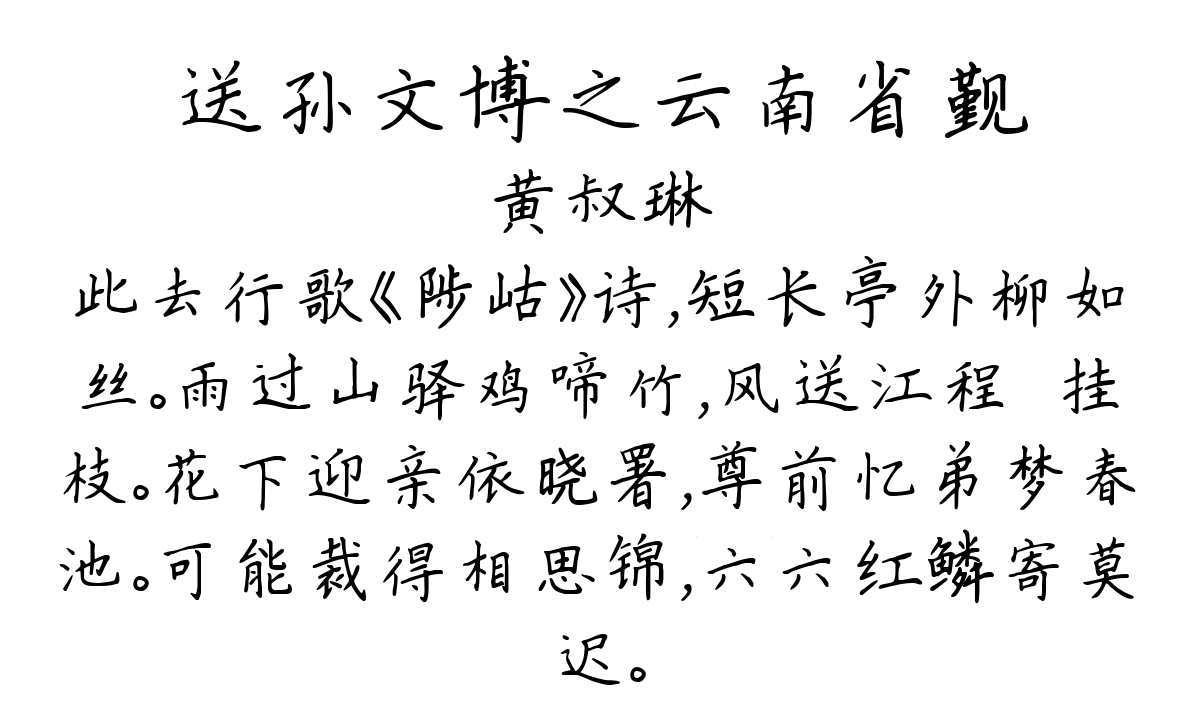 送孙文博之云南省觐
黄叔琳
此去行歌《陟岵》诗,短长亭外柳如
丝。雨过山驿鸡啼竹,风送江程 挂
枝。花下迎亲依晓署,尊前忆弟梦春
池。可能裁得相思锦,六六红鳞寄莫
迟。